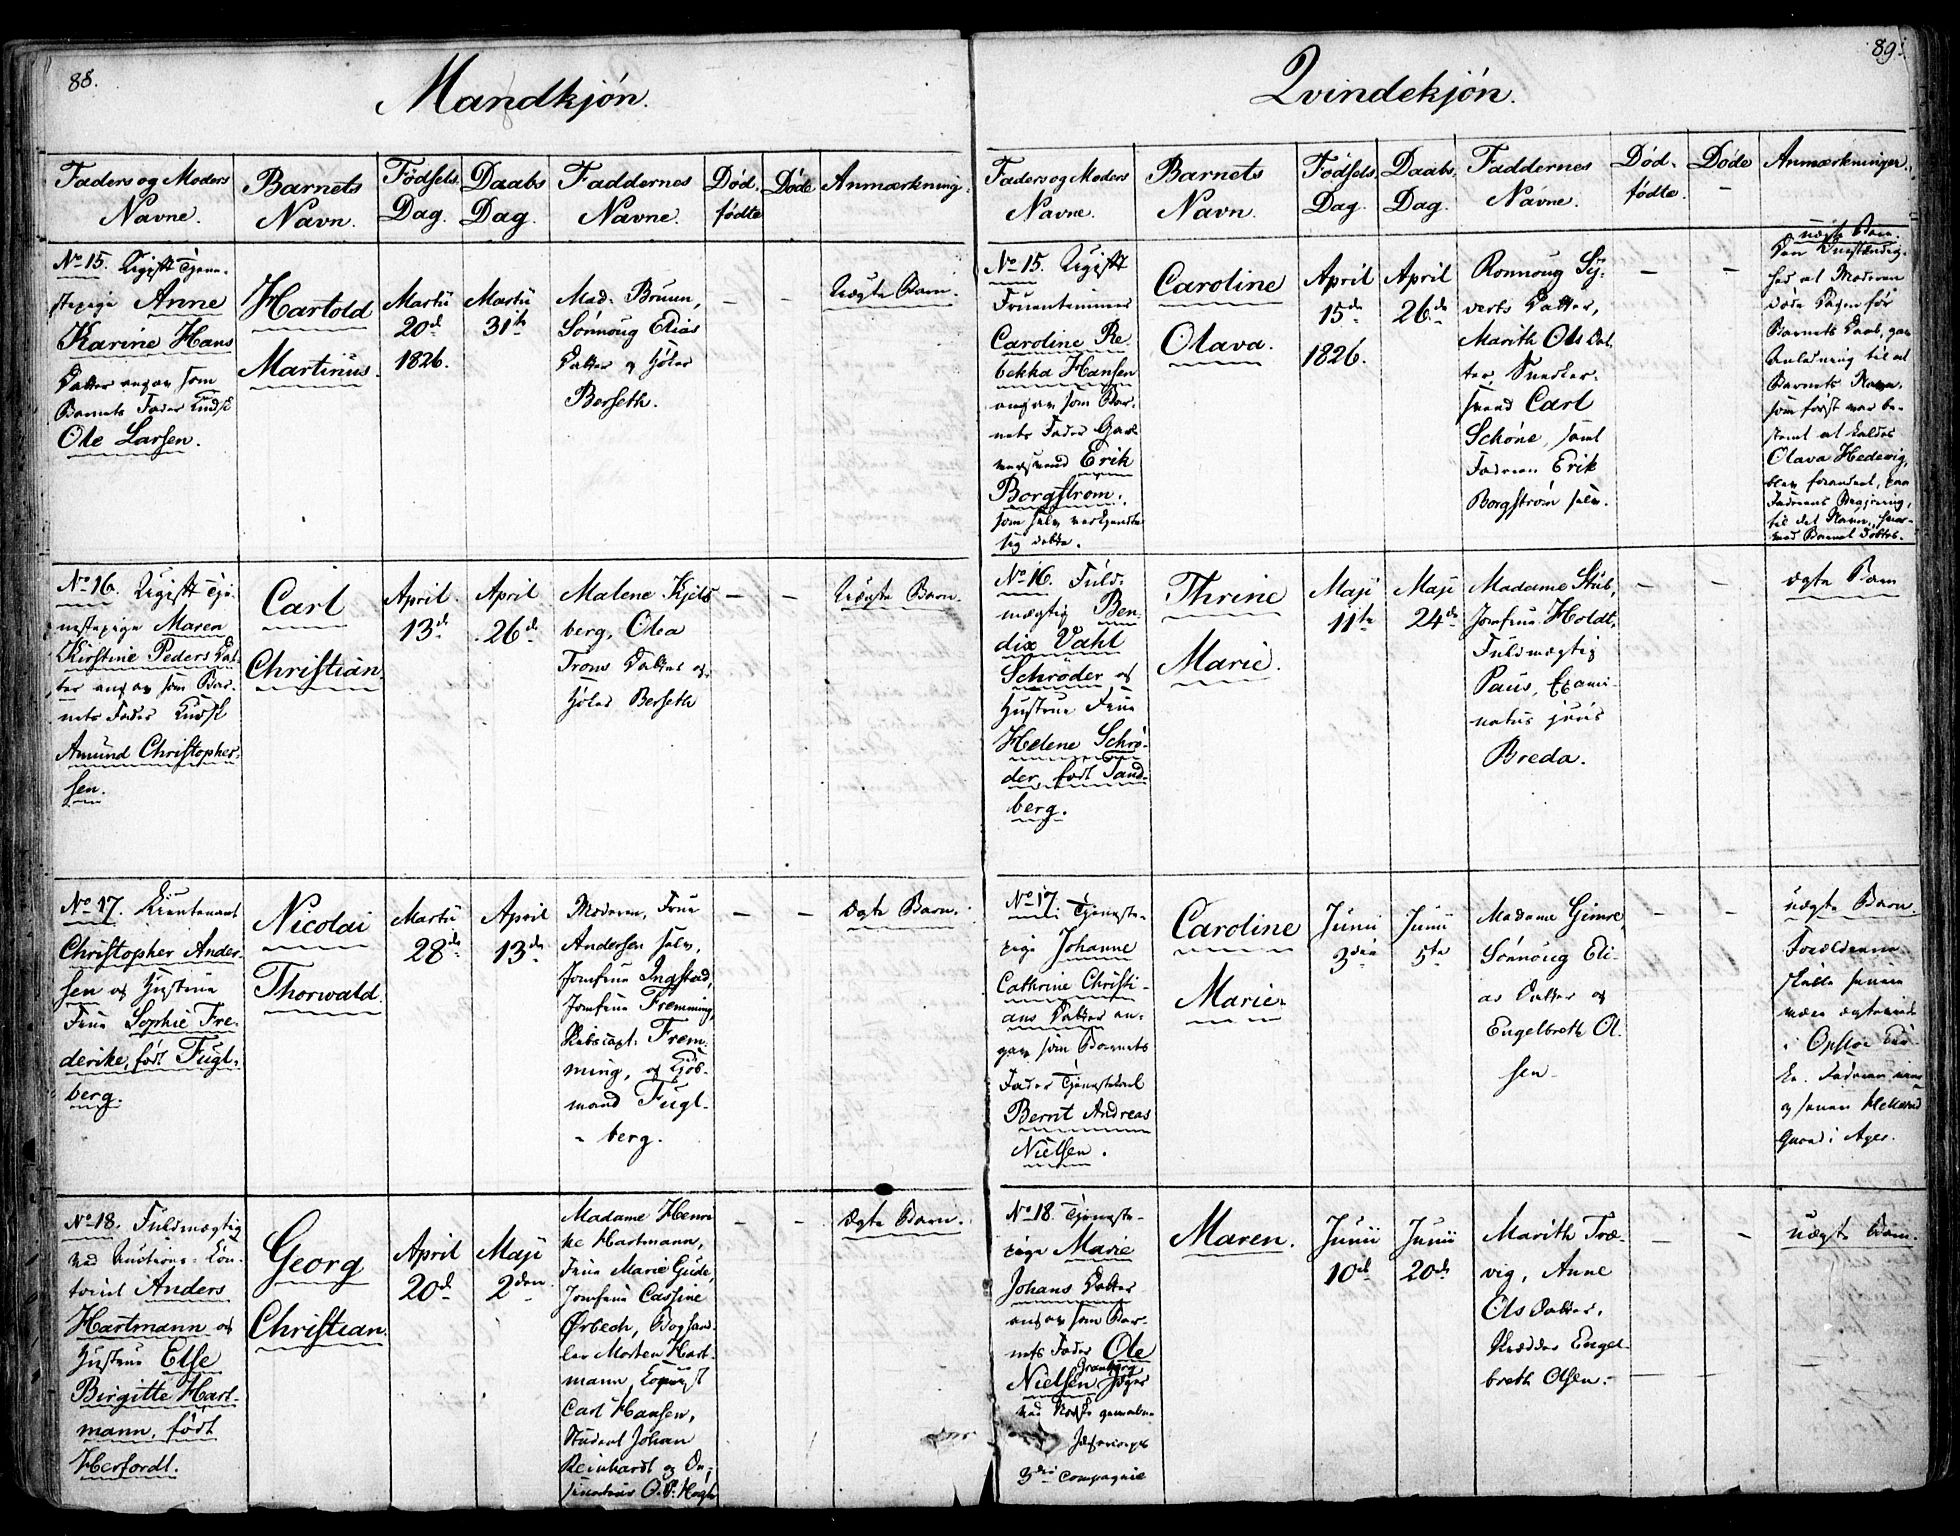 88.
Mandkjön.
Faders og Moders
Navne.
Barnets
Navn.
Födsels
Dag.
Daabs
Dag.
Faddernes
Navne.
Död,
födte
Döde
Anmærkning.
No 15. Ugift Tjene-
stepige Anne
Karine Hans
Datter angav som
Barnets Fader
Ole Larsen.
Hartold
Martinus.
Martii
20d
1826.
Martii
31te
Mad. Bruun,
Sönnöug Elias
Datter og
Berseth.
—
—
Uægte Barn.
No 16. Ugift Tje-
nestepige Maren
Kirstine Peders Dat-
ter angav som Bar-
nets Fader
Amund Christopher-
sen.
Carl
Christian.
April.
13d.
April
26d.
Malene Kjils
berg, Olea
Trons Datter og
Berseth
—
—
Uægte Barn.
No 17. Lieutenant
Christopher Ander-
sen og Hustrue
Frue Sophie Fre-
derike, födt Fugl-
berg.
Nicolai
Thorwald.
Martii
28de
April
13de
Moderen, Frue
Andersen selv,
Jomfrue Ingstad,
Jomfrue Fremming,
Skibscapt. Frem-
ming, og Kjöb-
mand Fugl-
berg.
—
—
Ægte Barn.
No 18. Fuldmægtig
ved Auctions-Con-
toiret Anders
Hartmann og
Hustrue Else
Birgitte Hart-
mann, födt
Herfordt.
Georg
Christian.
April
20d.
Maji
2den
Madame Henri
ke Hartmann,
Frue Marie Gude,
Jomfrue Cassine
Örbech, Boghand-
ler Morten Hart-
mann, Copiist
Carl Hansen,
Student Johan
Reinhardt og
O. P.
—
—
Ægte Barn.
89.
Qvindekjön.
Faders og Moders
Navne.
Barnets
Navn.
Födsels
Dag.
Daabs
Dag.
Faddernes
Navne.
Död-
födte.
Döde
Anmærkninger.
No 15. Ugift
Fruentimmer
Caroline Re
bekka Hansen
angav som Bar-
nets Fader
Erik
Borgström,
som selv vedkjendte
sig dette.
Caroline
Olava.
April
15de
1826.
April
26de
Ronnoug Sy-
verts Datter,
Marith Ols Dat-
ter, Snedker-
svend Carl
Schöne, samt
Faderen Erik
Borgström selv.
—
—
uægte Barn.
Den Omstændig-
hed at Moderen
döde Dagen för
Barnets Daab, gav
Anledning til at
Barnets Navn,
som först var be-
stemt at kaldes
Olava Hedevig,
blev forandret, paa
Faderens Begjering,
til det Navn, hvor-
med Barnet döbtes.
No 16. Fuld-
mægtig Ben-
dix Vahl
Schröder og
Hustrue Frue
Helene Schrö-
der, födt Sand-
berg.
Thrine
Marie.
Maji
11te
Maji
24de
Madame Stub,
Jomfrue Holdt,
Fuldmægtig
Paus, Exami-
natus juris
Breda.
—
—
ægte Barn
No 17. Tjeneste-
pige Johanne
Cathrine Christi-
ans Datter an-
gav som Barnets
Fader Tjenestekarl
Bernt Andreas
Nielsen.
Caroline
Marie
Junii
3die
Junii
5te
Madame Gimre,
Sönnöug Eli-
as Datter og
Engelbreth Ol-
sen
—
—
uægte Barn.
Forældrene
skulle senere
være ægteviede
i Opsloe Kir-
ke. Faderen
og senere
Gaard i Ager.
No 18. Tjeneste-
pige Marie
Johans Datter
angav som Bar-
nets Fader Ole
Granberg
Nielsen Jæger
ved Norske
Jægercorps
3die Compagnie
Maren.
Junii
10de
Junii
20de
Marith Træ-
vig, Anne
Ols Datter,
Skrædder Engel-
breth Olsen.
—
—
uægte Barn.